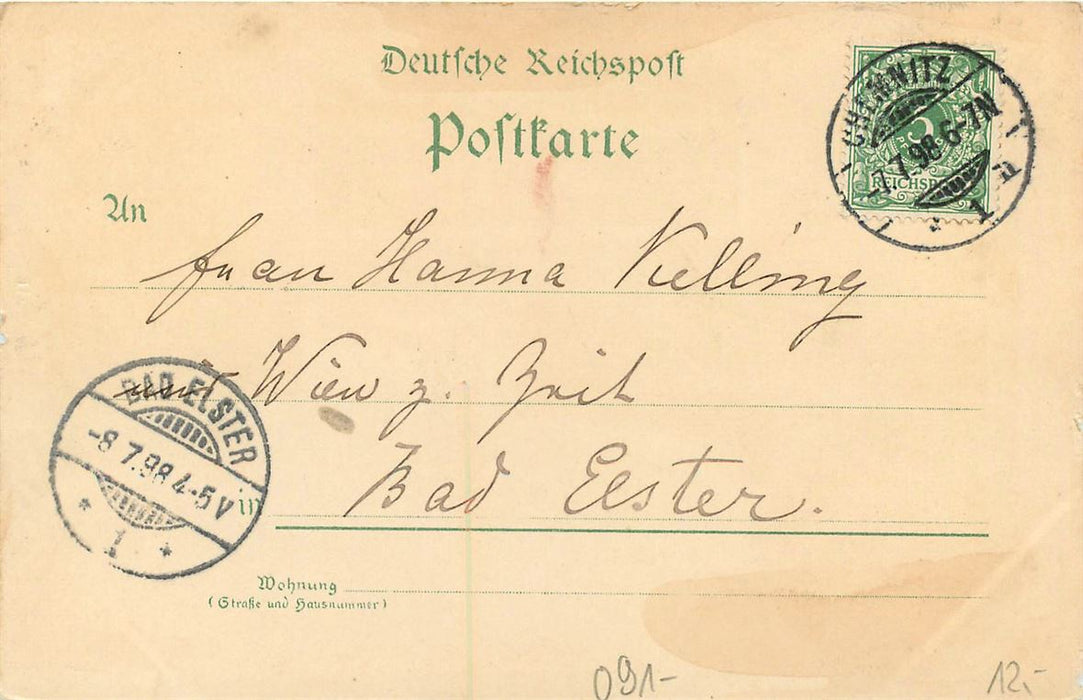 Deutsche Reichspost
Postkarte
CHEMNITZ
-7.7.98.6-7N
* 1
5
REICHSPOST
An
Frau Hanna Kelling
Wien z. Zeit
BAD ELSTER
-8 7.98 4-5V
* 1 *
in Bad Elster.
Wohnung
(Straße und Hausnummer)
091-
12,-